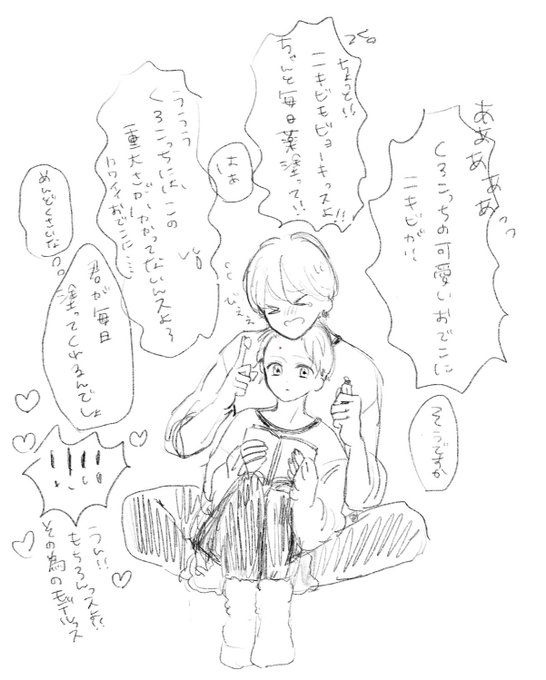 ああああぁ
くろこっちの可愛いおでこに
ニキビが!!
そうですか
ちょっと!!
ニキビもビョーキっスよ!!
ちゃんと毎日薬塗って!!
はぁ
ううう
くろこっちには、この
重大さがわかってないんスよ
カワイイおでこに…
めんどくさいな
君が毎日
塗ってくれるんでしょ
びえぇ
!!!!
うん!!
もちろんっスよ!!
その為のモデルっス